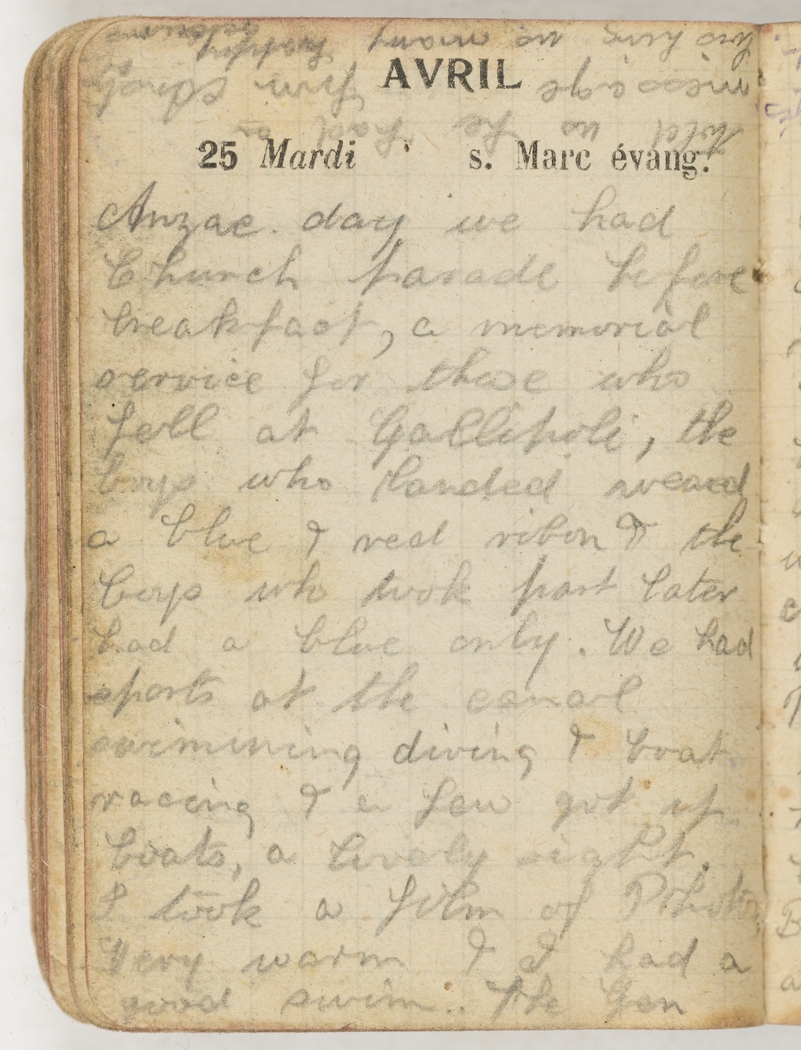 AVRIL
25 Mardi s. Marc évang.
Anzac day we had
Church parade before
breakfast, a memorial
service for those who
fell at Gallipoli, the
boys who landed weard
a blue & red ribon & the
boys who took part later
had a blue only. We had
sports at the canal
swimming diving & boat
racing & a few got up
boats, a lovely sight.
I took a film of Photos,
Very warm & I had a
good swim.. The Gen
told us he had a
message from King
his how so many happy